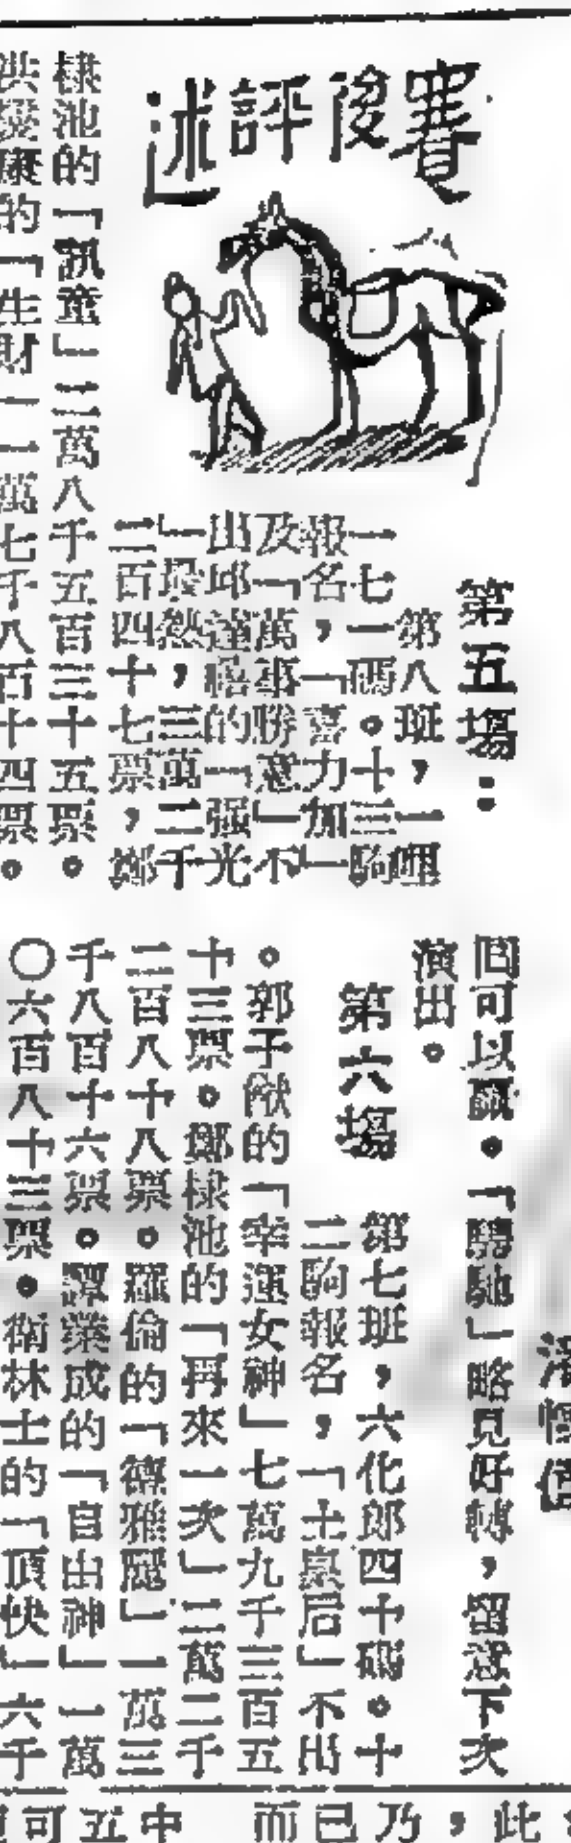 賽後評述
第五場：
第八班，一哩
一七一碼。十三駒
報名，「喜力加」
及「萬事勝意」不
出邱達昭的「强光
」最然，三萬二千
二百四十七票，鄭
棣池的「訊童」二萬八千五百三十五票。
的「生財」一萬七千八百十四票。
可以贏。「驃馳」略見好轉，留意下次
演出。
第六場
第七班，六化郎四十碼。十
二駒報名，「土皇后」不出
。郭子猷的「幸運女神」七萬九千三百五
十三票。鄭棣池的「再來一次」二萬二千
二百八十八票。羅倫的「德雅麗」一萬三
千八百十六票。譚業成的「自由神」一萬
〇六百八十三票。衛林士的「頂快」六千
，此
乃
已
而
中
五
可